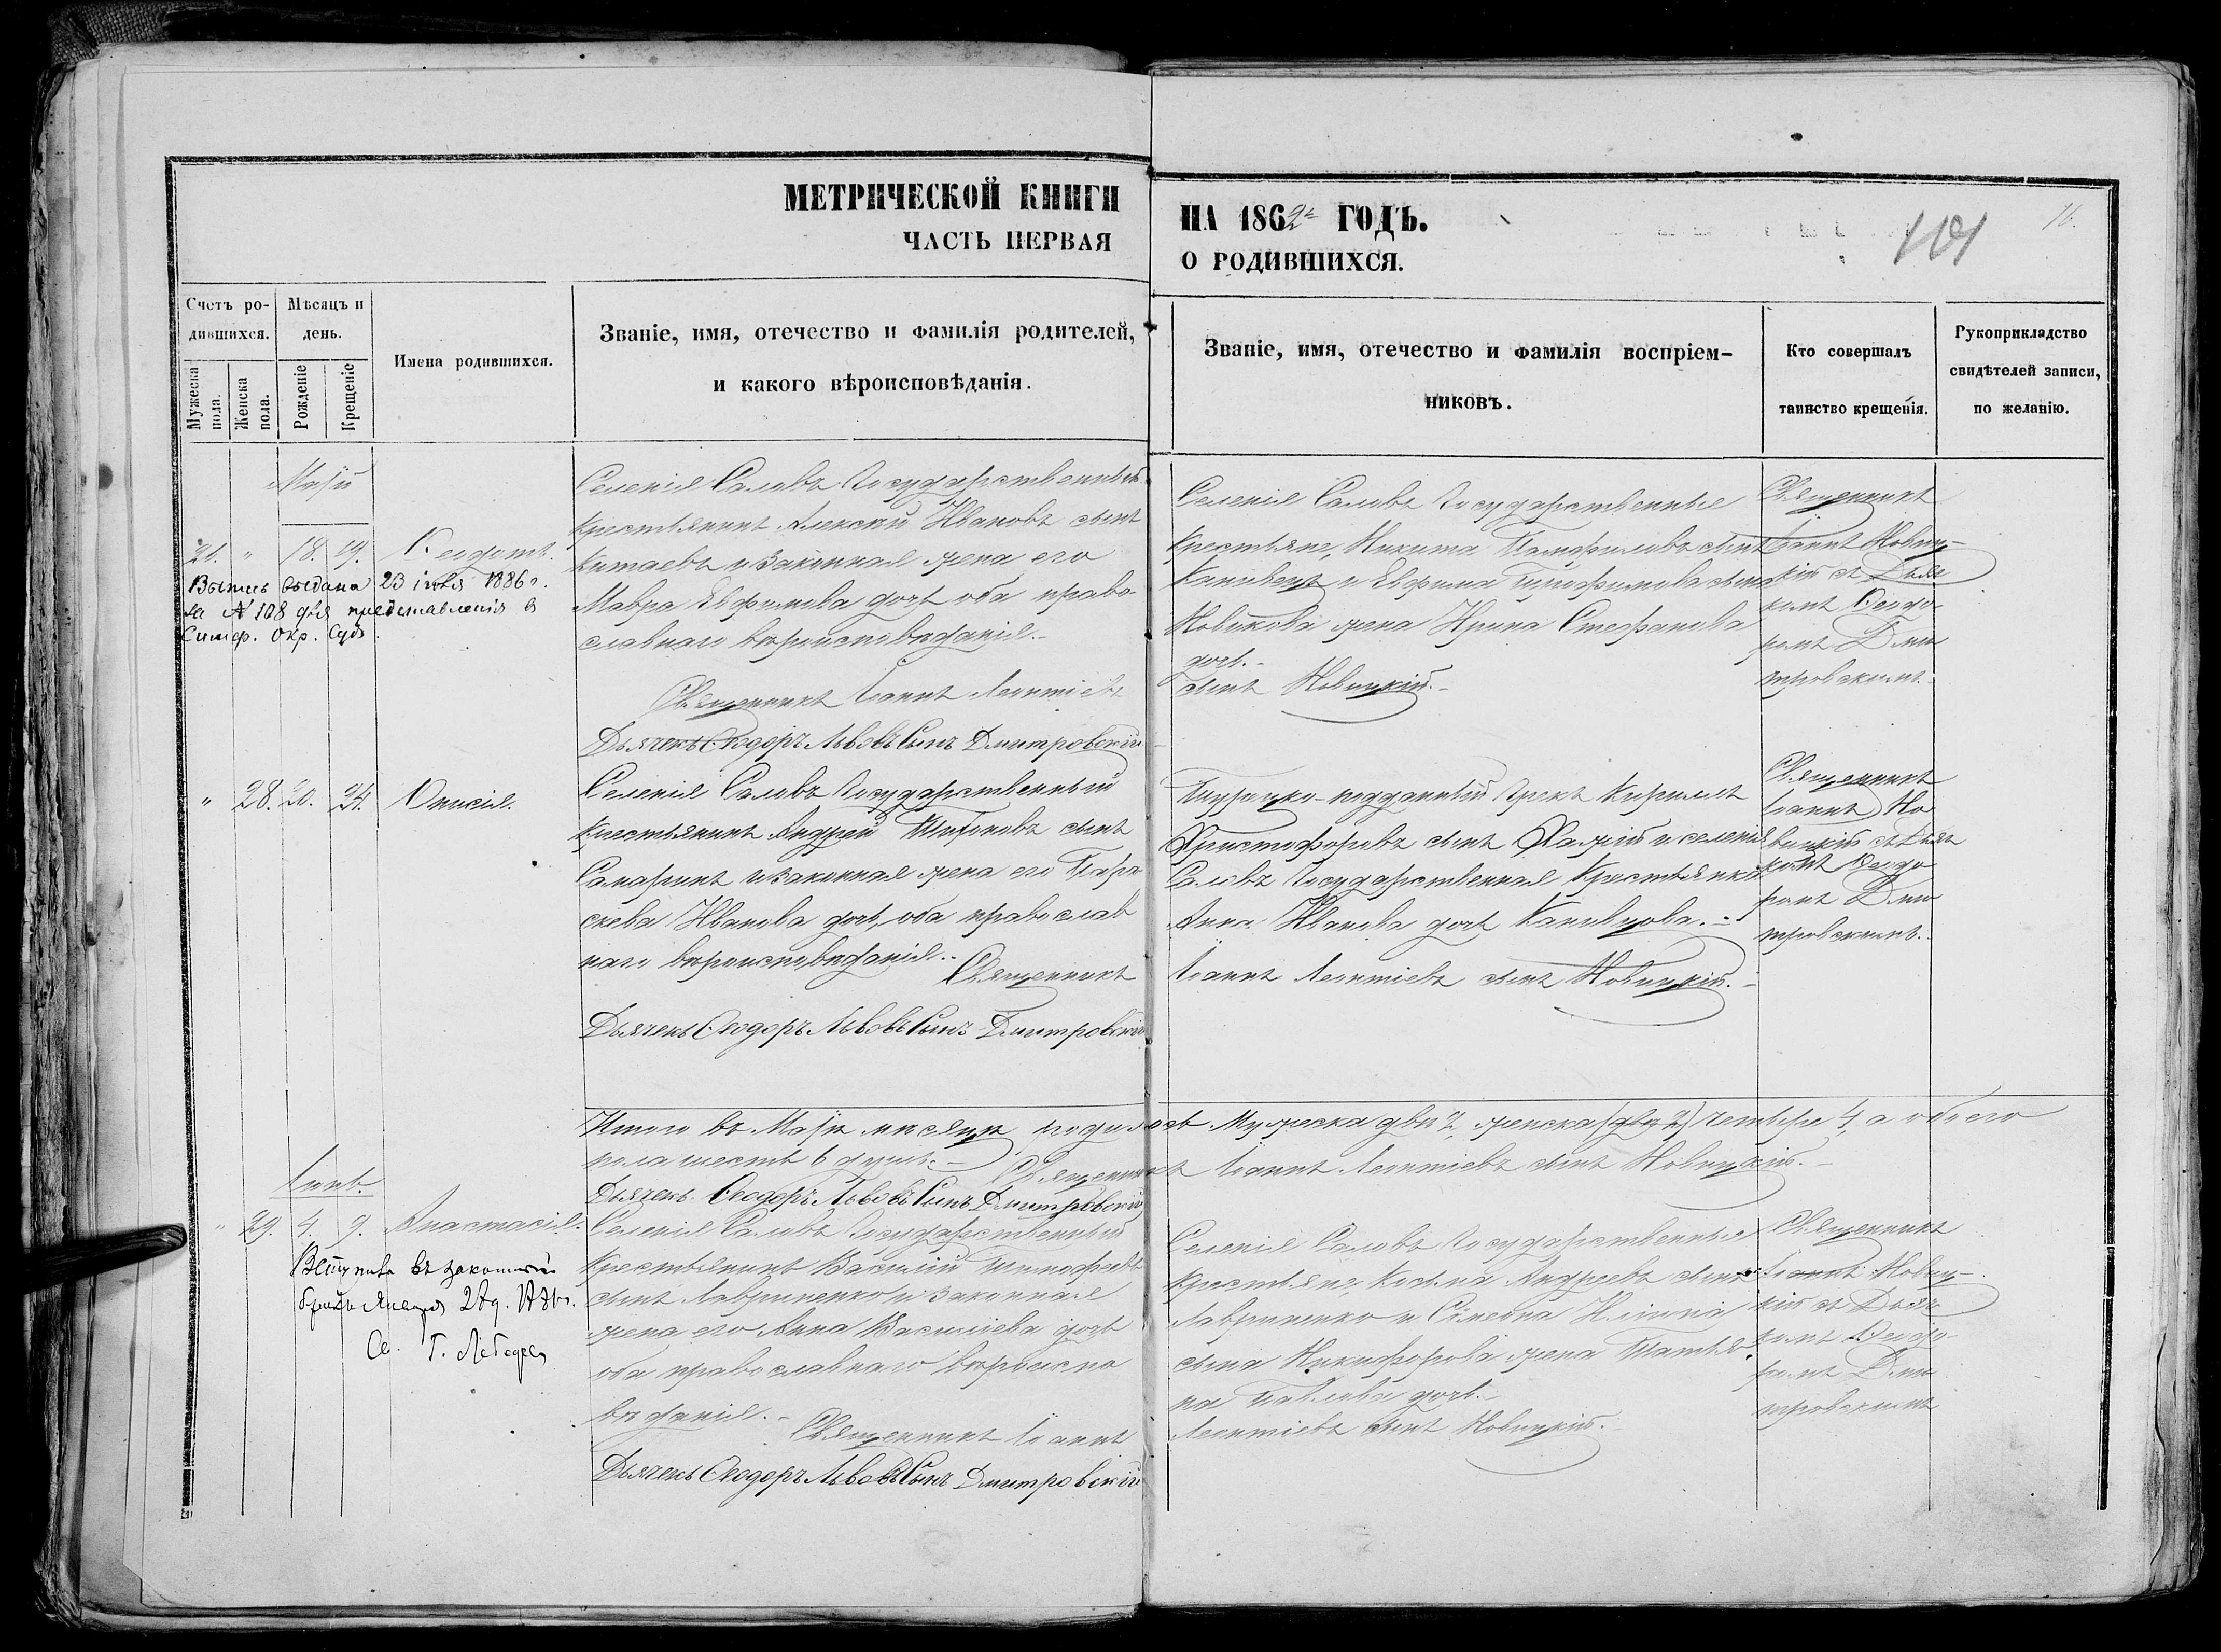 МЕТРИЧЕСКОЙ КНИГИ
ЧАСТЬ ПЕРВАЯ
НА 1862 ГОДЪ.
О РОДИВШИХСЯ.
101
16.
Счетъ ро-
дившихся.
Мужеска
пола.
Женска
пола.
Мѣсяцъ и
день.
Рожденіе
Крещеніе
Имена родившихся.
Званіе, имя, отечество и фамилія родителей,
и какого вѣроисповѣданія.
Званіе, имя, отечество и фамилія воспріем-
никовъ.
Кто совершалъ
таинство крещенія.
Рукоприкладство
свидѣтелей записи,
по желанію.
Маій
21. " 18. 19. Ѳеодотъ.
Выпись выдана 23 іюля 1886 г.
за № 108 для представленія в
Симф. Окр. Судъ.
Селенія Саловъ Государственный
Крестьянинъ Алексій Ивановъ сынъ
Китаевъ и законная жена его
Мавра Евфимова дочь оба право
славнаго вѣроисповѣданія.
Священникъ Іоаннъ Леонтіевъ
Дьячекъ Ѳеодоръ Львовъ Сынъ Дмитровскій
Селенія Саловъ Государственные
Крестьяне, Никита Памфиловъ сынъ
Канивецъ и Евфима Тимофимова сына
Новикова жена Ирина Стефанова
дочь.
сынъ Новицкій.
Священникъ
Іоаннъ Новиц-
кій съ Дьяч
комъ Ѳеодо
ромъ Дми
тровскимъ.
" 28. 20. 24. Онисія.
Селенія Саловъ Государственный
Крестьянинъ Андрей сынъ
Самаринъ и законная жена его Пара
скева Иванова дочь, оба православ
наго вѣроисповѣданія.
Священникъ
Дьячекъ Ѳеодоръ Львовъ Сынъ Дмитровскій
Турецко-подданный Грекъ Кириллъ
Христофоровъ сынъ и селенія
Саловъ Государственная Крестьянка
Анна Иванова дочь Канивцова.
Іоаннъ Леонтіевъ сынъ Новицкій.
Священникъ
Іоаннъ Но
вицкій съ Дьяч
комъ Ѳеодо
ромъ Дми
тровскимъ.
Итого въ Маіи мѣсяцѣ родилось Мужеска два 2, женска (два 2) четыре 4, а обоего
пола шесть 6 душъ. Священникъ Іоаннъ Леонтіевъ сынъ Новицкій.
Дьячекъ Ѳеодоръ Львовъ Сынъ Дмитровскій
Іюнь.
" 29. 4. 9. Анастасія.
Вступила въ законный
бракъ Января
Св. Г. Лебедев
Селенія Саловъ Государственный
Крестьянинъ Василій Тимофеевъ
сынъ Лавриненко и законная
жена его Анна Василіева дочь
оба православнаго вѣроиспо
вѣданія.
Священникъ Іоаннъ
Дьячекъ Ѳеодоръ Львовъ Сынъ Дмитровскій
Селенія Саловъ Государственные
Крестьяне, Косьма Андреевъ сынъ
Лавриненко и Симеона Иліина
сына Никифорова жена Татья
на Павлова дочь.
Леонтіевъ сынъ Новицкій.
Священникъ
Іоаннъ Новиц-
кій съ Дьяч
комъ Ѳеодо-
ромъ Дми
тровскимъ